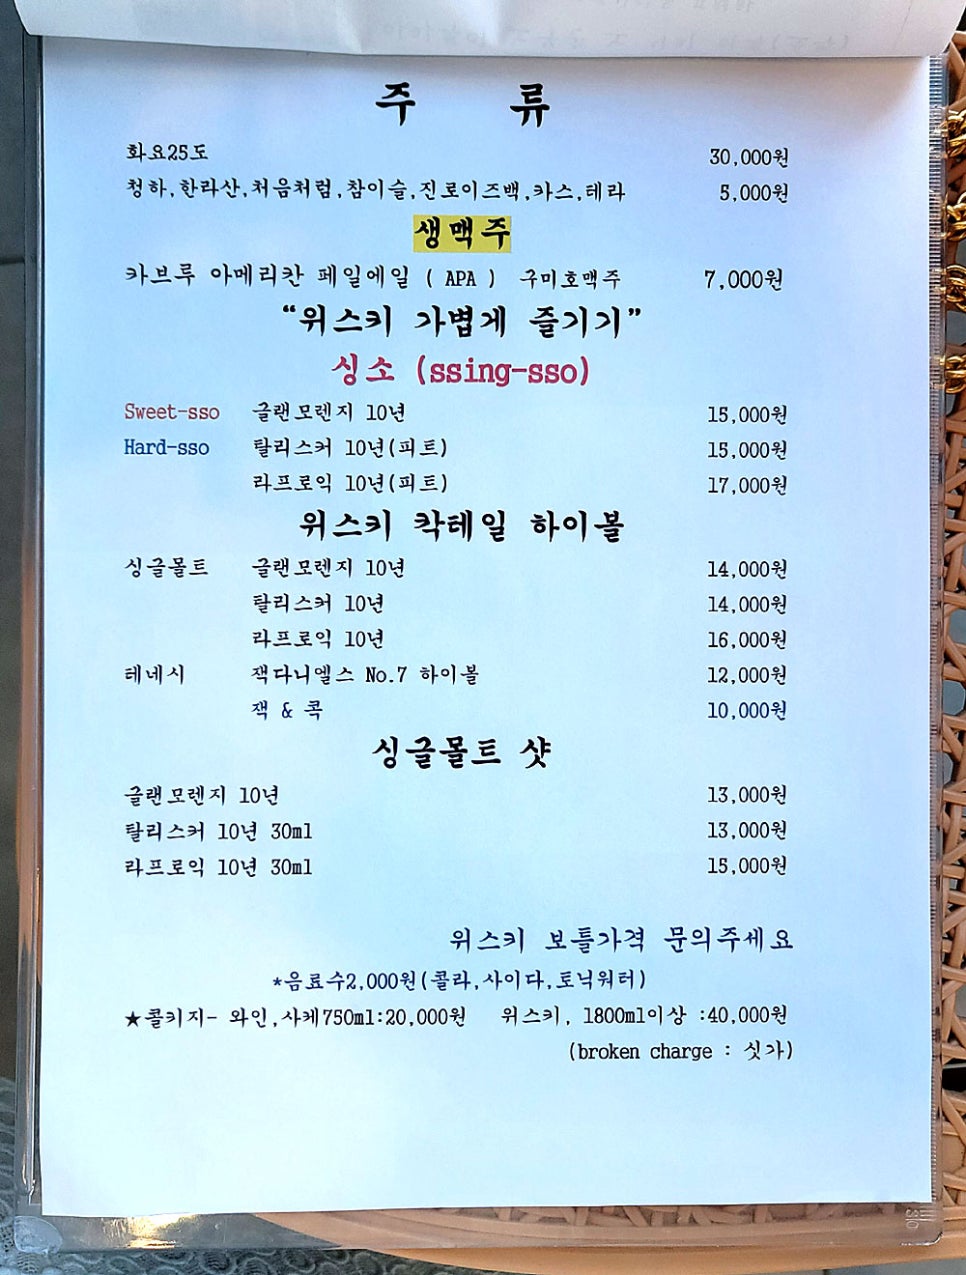 주 류
화요25도 30,000원
청하,한라산,처음처럼,참이슬,진로이즈백,카스,테라 5,000원
생맥주
카브루 아메리칸 페일에일 ( APA ) 구미호맥주 7,000원
“위스키 가볍게 즐기기”
싱소 (ssing-sso)
Sweet-sso 글랜모렌지 10년 15,000원
Hard-sso 탈리스커 10년(피트) 15,000원
라프로익 10년(피트) 17,000원
위스키 칵테일 하이볼
싱글몰트 글랜모렌지 10년 14,000원
탈리스커 10년 14,000원
라프로익 10년 16,000원
테네시 잭다니엘스 No.7 하이볼 12,000원
잭 & 콕 10,000원
싱글몰트 샷
글랜모렌지 10년 13,000원
탈리스커 10년 30ml 13,000원
라프로익 10년 30ml 15,000원
위스키 보틀가격 문의주세요
*음료수2,000원(콜라,사이다,토닉워터)
★콜키지- 와인,사케750ml:20,000원 위스키, 1800ml이상 :40,000원
(broken charge : 싯가)